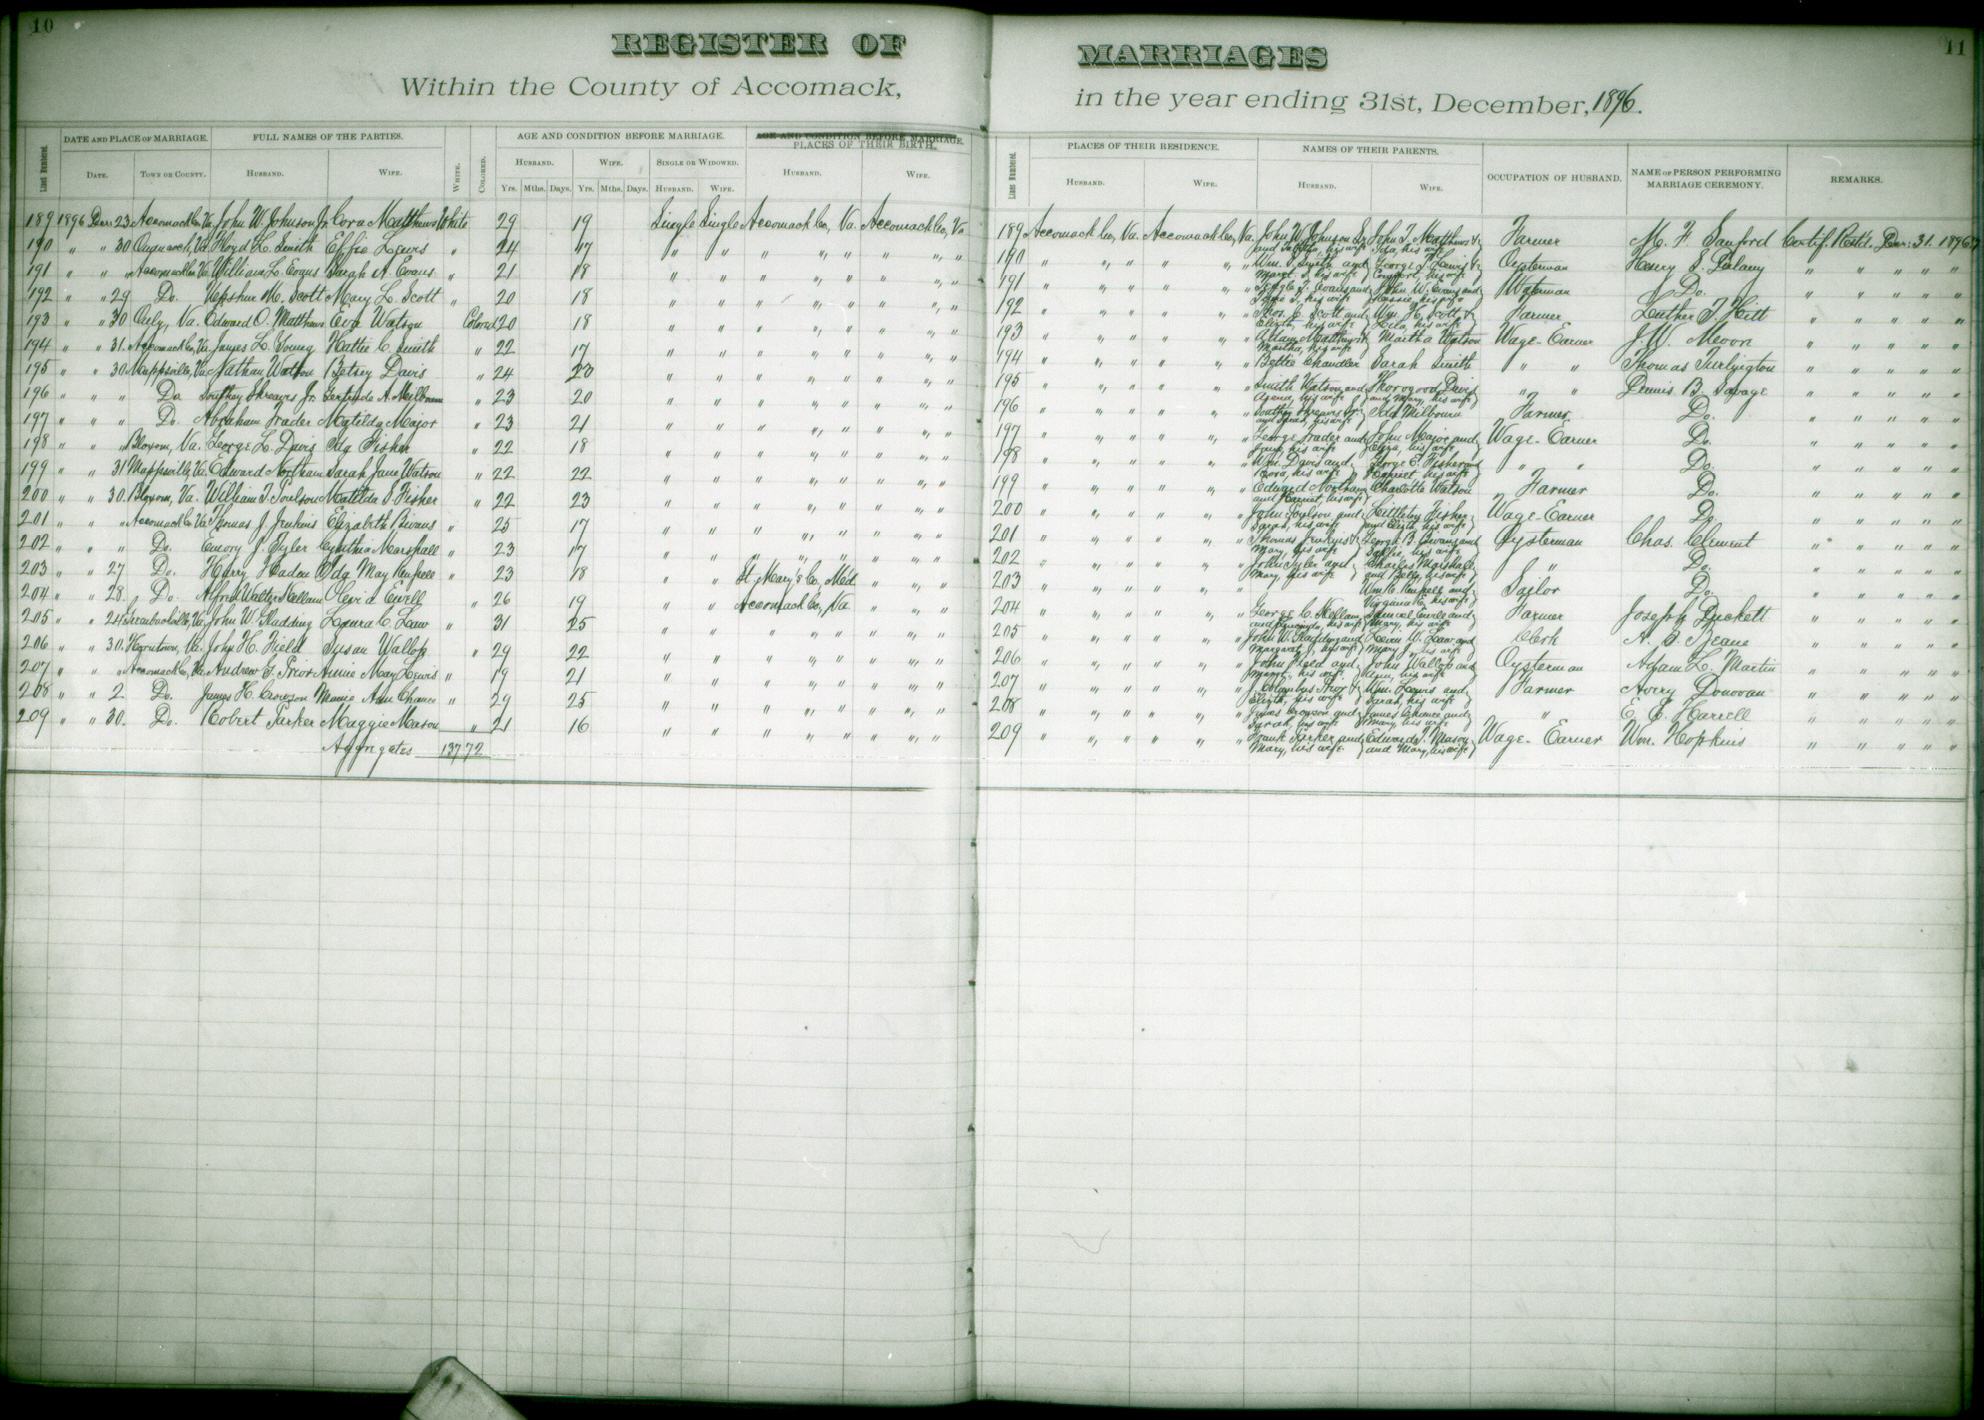 10
REGISTER OF
Within the County of Accomack,
MARRIAGES
in the year ending 31st, December, 1896.
11
Lines Numbered. DATE AND PLACE OF MARRIAGE. FULL NAMES OF THE PARTIES. WHITE. COLORED. AGE AND CONDITION BEFORE MARRIAGE. AGE AND CONDITION BEFORE MARRIAGE.
PLACES OF THEIR BIRTH.
DATE. TOWN OR COUNTY. HUSBAND. WIFE. HUSBAND. WIFE. SINGLE OR WIDOWED. HUSBAND. WIFE.
Yrs. Mths. Days. Yrs. Mths. Days. HUSBAND. WIFE.
189 1896 Dec. 23 Accomack Co., Va. John W. Johnson Jr. Cora Matthews White 29 19 Single Single Accomack Co., Va. Accomack Co., Va
190 " " 30 Onancock, Va. Floyd L. Smith Effie Lewis " 24 17 " " " " " "
191 " " " Accomack Co. Va. William L. Evans Sarah A. Evans " 21 18 " " " " " "
192 " " 29 Do. Upshur M. Scott Mary L. Scott " 20 18 " " " " " "
193 " " 30 Va. Edward O. Matthews Eva Watson Colored 20 18 " " " " " "
194 " " 31. Accomack Co., Va. James L. Young Hattie C. Smith " 22 17 " " " " " "
195 " " 30 Mappsville, Va. Nathan Watson Betsey Davis " 24 23 " " " " " "
196 " " " Do. Southey Shreaves Jr. Gertrude A. Milbourn " 23 20 " " " " " "
197 " " " Do. Abraham Trader Matilda Major " 23 21 " " " " " "
198 " " " Bloxom, Va. George L. Davis Ida Fisher " 22 18 " " " " " "
199 " " 31 Mappsville, Va. Edward Northam Sarah Jane Watson " 22 22 " " " " " "
200 " " 30. Bloxom, Va. William T. Poulson Matilda P. Fisher " 22 23 " " " " " "
201 " " " Accomack Co. Va. Thomas J. Jenkins Elizabeth Bivans " 25 17 " " " " " "
202 " " " Do. Emory J. Tyler Cynthia Marshall " 23 17 " " " " " "
203 " " 27 Do. Harry Haden Ida May " 23 18 " " St. Mary's Co., Md. " " "
204 " " 28. Do. Alfred Walter Kellam Olevia Ewell " 26 19 " " Accomack Co., Va. " " "
205 " " 24 Greenbackville, Va. John W. Gladding Laura C. Law " 31 25 " " " " " "
206 " " 30. Horntown, Va. John H. Field Susan Wallop " 29 22 " " " " " "
207 " " " Accomack Co., Va. Andrew T. Prior Annie May Lewis " 19 21 " " " " " "
208 " " 2 Do. James H. Crowson Mamie Ann Chance " 29 25 " " " " " "
209 " " 30. Do. Robert Parker Maggie Mason " 21 16 " " " " " "
Aggregates 137 72
Lines Numbered. PLACES OF THEIR RESIDENCE. NAMES OF THEIR PARENTS. OCCUPATION OF HUSBAND. NAME OF PERSON PERFORMING MARRIAGE CEREMONY. REMARKS.
HUSBAND. WIFE. HUSBAND. WIFE.
189 Accomack Co., Va. Accomack Co., Va. John W. Johnson Sr. and his wife John T. Matthews & his wife Farmer M. F. Sanford Certif. Ret'd. Dec. 31. 1896
190 " " Wm. Smith and Margt. his wife George T. Lewis & his wife Oysterman Henry S. " " " "
191 " " George T. Evans and his wife John W. Evans and his wife Waterman Do. " " " "
192 " " Thos. C. Scott and Elizth, his wife Wm. H. Scott & his wife Farmer Luther T. Hitt " " " "
193 " " Matthews & Martha, his wife Martha Watson Wage-Earner J. W. Meoon " " " "
194 " " Bettie Chandler Sarah Smith " " Thomas Turlyington " " " "
195 " " Smith Watson and his wife Thorogood Davis and Mary, his wife " " Dennis B. Savage " " " "
196 " " Southey Shreaves Sr. and Sarah, his wife Ida Milbourn Farmer Do. " " " "
197 " " George Trader and Jane, his wife John Major and Eliza, his wife Wage-Earner Do. " " " "
198 " " Wm. Davis and his wife George E. Fisher and Harriet, his wife " " Do. " " " "
199 " " Edward Northam and Harriet, his wife Charlotte Watson Farmer Do. " " " "
200 " " John Poulson and Sarah, his wife Littleton Fisher and Elizth, his wife Wage-Earner Do. " " " "
201 " " Thomas Jenkins & Mary, his wife George B. Bivans and Sophie, his wife Oysterman Chas. Clement " " " "
202 " " John Tyler and Mary, his wife Charles Marshall and Bell, his wife " Do. " " " "
203 " " Wm. C. and Virginia E. his wife Sailor Do. " " " "
204 " " George C. Kellam and his wife Samuel Ewell and Mary, his wife Farmer Joseph Puckett " " " "
205 " " John W. Gladding and Margaret J., his wife W. Law and Mary J., his wife Clerk A. J. Beane " " " "
206 " " John Field and his wife John Wallop and Ann, his wife Oysterman Adam L. Martin " " " "
207 " " Columbus Prior & Elizth, his wife Wm. Lewis and Sarah, his wife Farmer Avery Donovan " " " "
208 " " James Crowson and Sarah, his wife James Chance and Mary, his wife " E. C. Harrell " " " "
209 " " Frank Parker and Mary, his wife Edward T. Mason and Mary, his wife Wage-Earner Wm. Hopkins " " " "